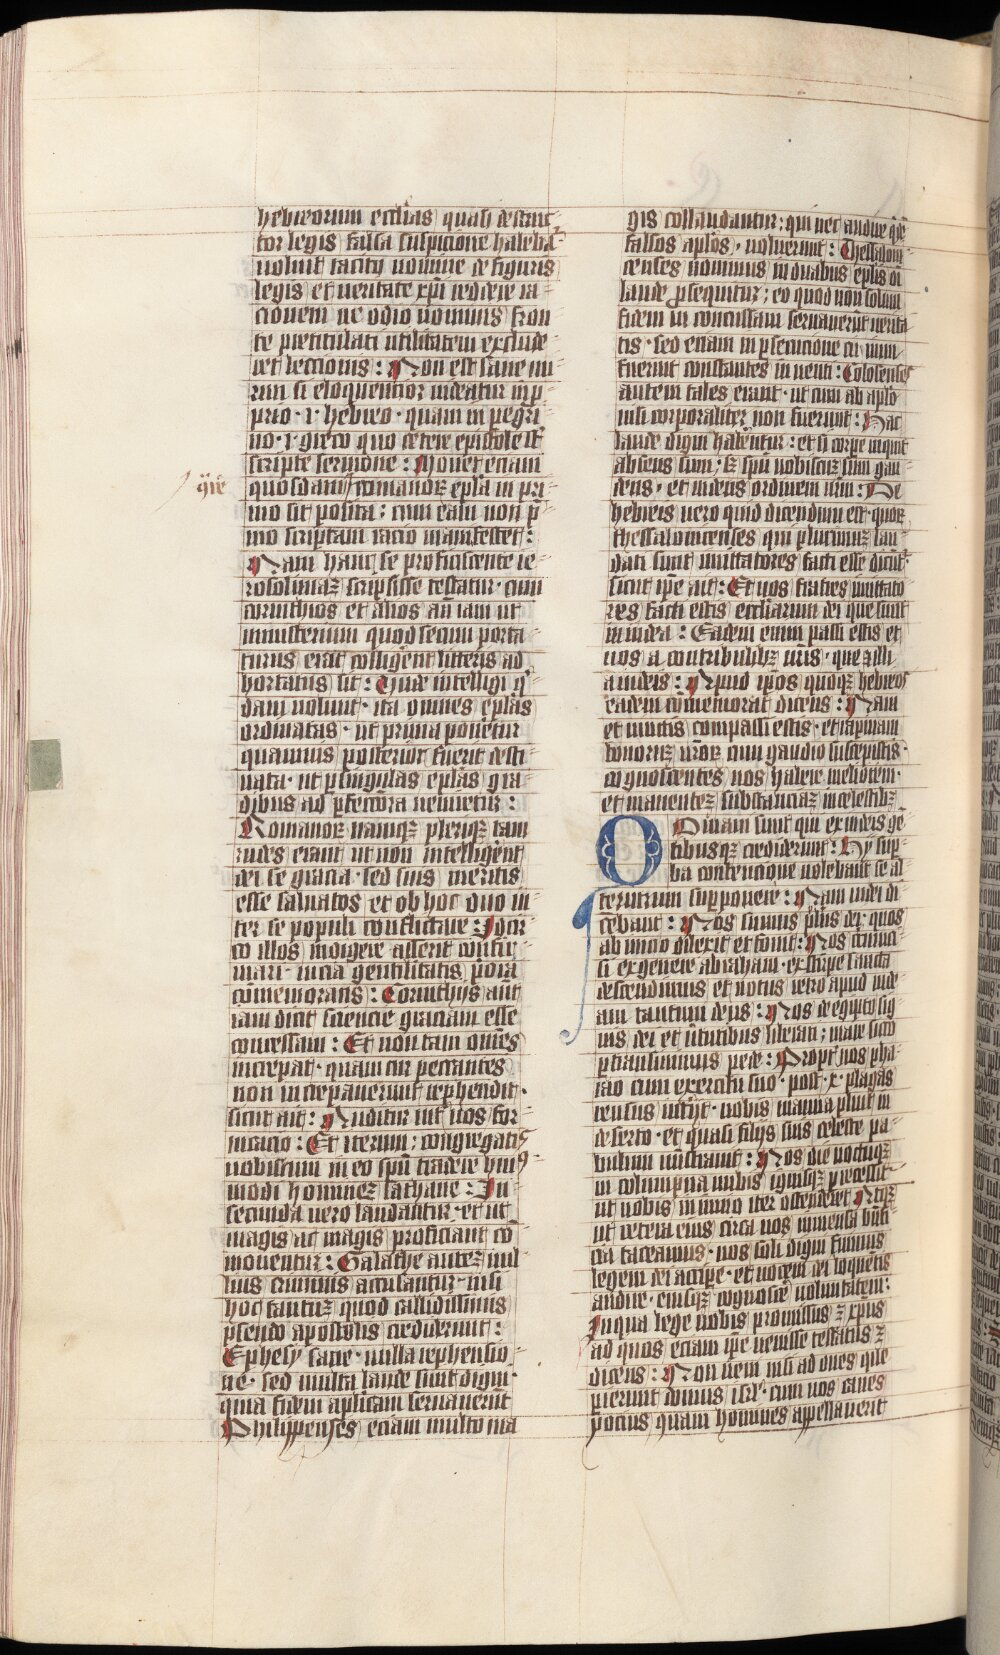 hebreorum ecclias quasi destruc
tor legis falsa suspicione habebat᷑
voluit tacito nomine de figuris
legis et veritate xp̄i reddere ra
cionem ne odio nominis fron
te pretitulati utilitatem exclude
ret leccionis : Non est sane mi
rum si eloquentior videatur in p
prio · i · hebreo · quam in pegri
no · i · greco quo cetere epistole st̄
scripte sermone : Movet eciam
quosdam romanoꝝ epl̄a in pri
que
mo sit posita : cum eam non p̄
mo scriptam racio manifestet :
Nam hanc se proficiscente ie
rosolimaꝫ scripsisse testatur · cum
corinthios et alios an̄ iam ut
ministerium quod secum porta
turus erat colligerent litteris ad
hortatus sit : Unde intelligi q̄
dam volunt · ita omnes epl̄as
ordinatas · ut prima poneretur
quamvis posterior fuerit desti
nata · ut p singulas epl̄as gra
dibus ad pfectiora veniretur :
Romanoꝝ namqꝫ pleriqꝫ tam
rudes erant ut non intelligerent
dei se gracia · sed suis meritis
esse salvatos et ob hoc duo in
ter se populi conflictare : Idcir
co illos indigere asserit confir
mari · vicia gentilitatis priora
cōmemorans : Corinthijs aut̄
iam dicit sciencie graciam esse
concessam : Et non tam om̄es
increpat · quam cur peccantes
non increpaverunt reprehendit ·
sicut ait : Auditur int̄ vos for
nicacio : Et iterum : congregatis
vobiscum in eo spū tradere huiꝰ
modi homineꝫ sathane : In
secunda vero laudantur · et ut
magis ac magis proficiant cō
moventur : Galathe auteꝫ nul
lius criminis accusantur · nisi
hoc tantuꝫ quod callidissimis
pseudo apostolis crediderunt :
Ephesy sane · nulla reprehensio
ne · sed multa laude sunt digni ·
quia fidem aplicam servaverūt
Philippenses eciam multo ma
gis collaudantur ; qui nec audire q̄de
falsos apl̄os · voluerunt : Thessaloni
censes nominus in duabus epl̄is oī
laude psequitur ; eo quod non solum
fidem inconcussam servaverūt verita
tis · sed eciam in psecucione civium
fuerunt constantes inventi : Colosenses
autem tales erant · ut cum ab apl̄o
visi corporaliter non fuerunt : Hac
laude digni haberentur : et si corpe inquit
absens sum · sꝫ spū vobiscuꝫ sum gau
dens · et videns ordinem vr̄m : De
hebreis vero quid dicendum est · quoꝝ
thessalonicenses qui plurimuꝫ lau
dati sunt imitatores facti esse dicunt᷑
sicut ip̄e ait : Et vos fratres imitato
res facti estis eccl̄iarum dei que sunt
in iudea : Eadem enim passi estis et
vos a contribulibꝫ vr̄is · que et illi
a iudeis : Apud ip̄os quoqꝫ hebreos
eadem cōmemorat dicens : Nam
et vinctis compassi estis · et rapinam
bonoruꝫ vr̄oꝝ cum gaudio suscepistis ·
cognoscentes vos habere meliorem ·
et manenteꝫ substanciaꝫ in celestibꝫ
O Quidam sunt qui ex iudeis ge
tibusqꝫ crediderunt : Hy sup
ba contencione volebant se al
terutrum supponere : Nam iudei di
cebant : Nos sumus pl̄us dei · quos
ab inicio dilexit et fovit : Nos circūci
si ex genere abraham · ex stirpe sancta
descendimus et notus retro apud iude
am tantum deus : Nos de egipto sig
nis dei et v̄tutibus liberati ; mare sicco
ptransivimus pede : Propt̄ nos pha
rao cum exercitu suo · post · x · plagas
reuersus int̄ijt · nobis manna pluit in
deserto · et quasi filijs suis celeste pa
bulum ministravit : Nos die noctuqꝫ
in columpna nubis ignisqꝫ precessit
ut nobis in invio iter ostenderet Atqꝫ
ut cetera eius circa nos immensa bn̄fi
cia taceamus · nos soli digni fuimus
legem dei accipe · et vocem dei loquentis
audire · eiusqꝫ cognoscē voluntatem :
In qua lege nobis promissus ē xp̄us
ad quos eciam ip̄e venisse testatus ē
dicens : Non veni nisi ad oves que
pierunt domus isrl̄ · cum vos canes
pocius quam homines appellaverit